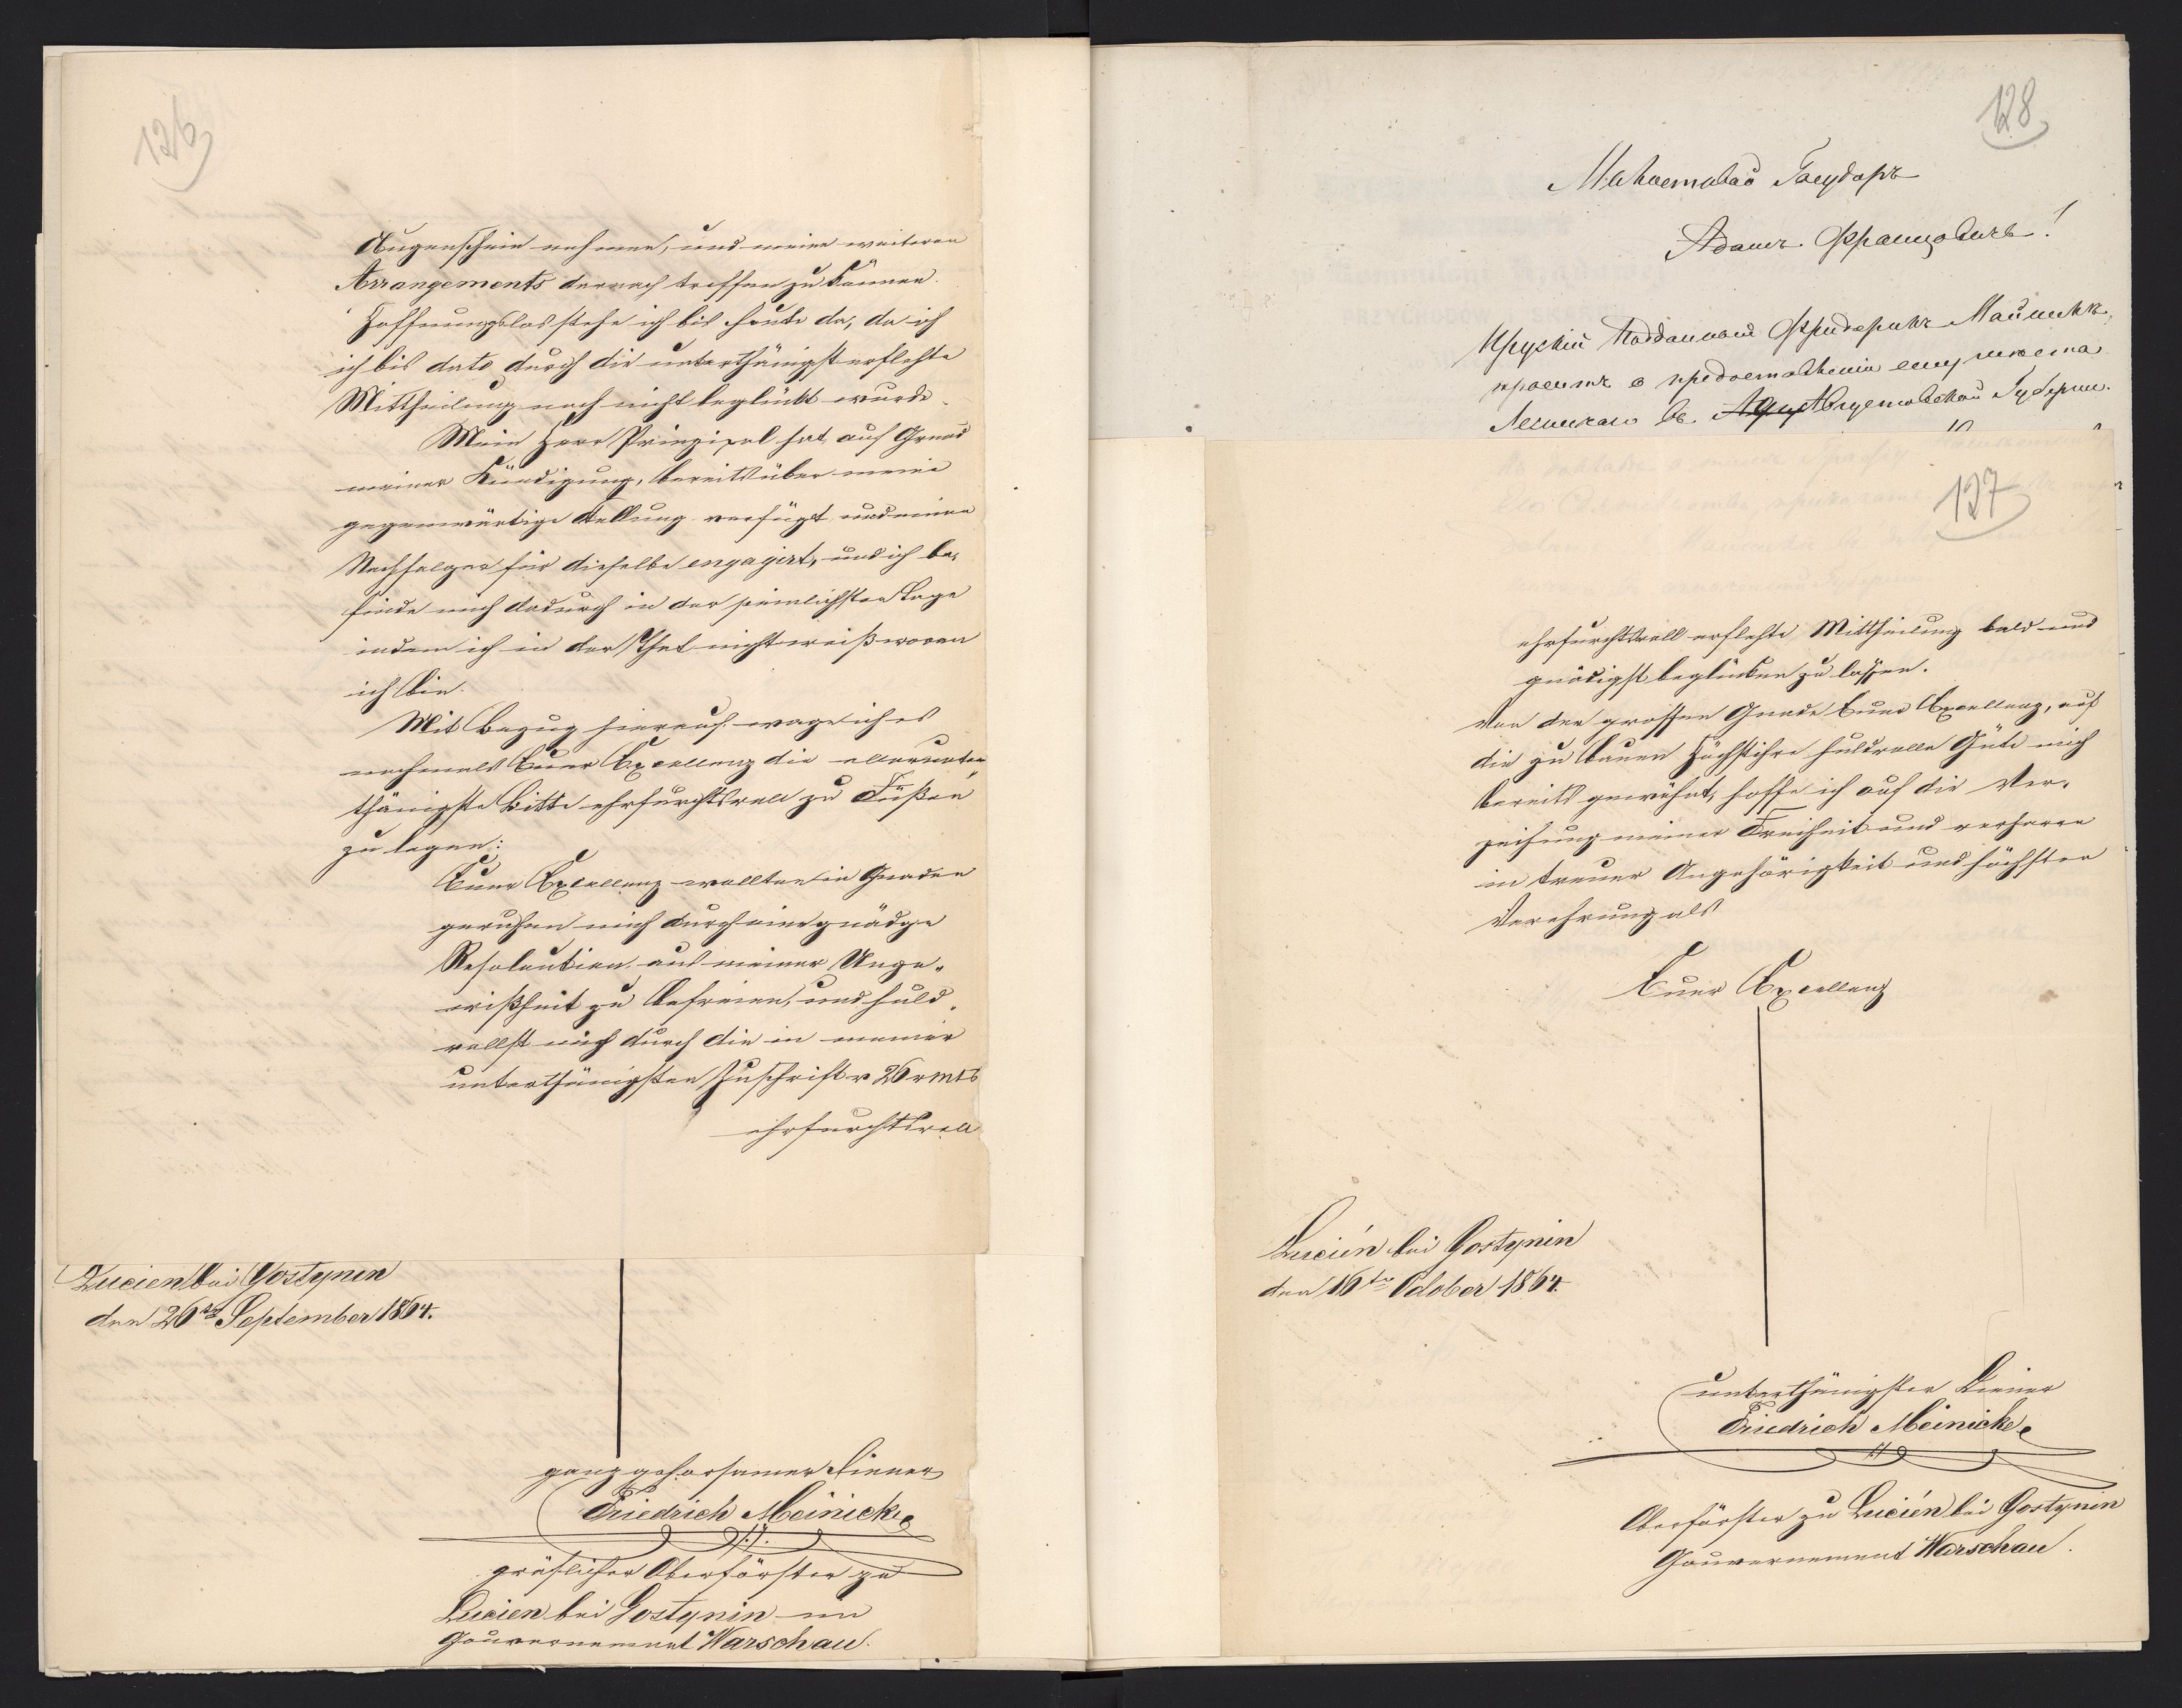 126
Augenschein nehmen, und meine weiteren
Arrangements darnach treffen zu können.
Hoffnungslos stehe ich bis heute da, da ich
ich bis dato durch die unterthänigst erflehte
Mittheilung noch nicht beglückt wurde.
Mein Herr Prinzipal hat auf Grund
meiner Kündigung, bereits über meine
gegenwärtige Stellung verfügt und einen
Nachfolger für dieselbe engagirt, und ich be-
finde mich dadurch in der peinlichsten Lage
indem ich in der That nicht weiß woran
ich bin.
Mit Bezug hierauf wage ich es
nochmals Euer Excellenz die allerunter-
thänigste Bitte ehrfurchtsvoll zu Füßen
zu legen:
Euer Excellenz wollten in Gnaden
geruhen mich durch eine gnädge
Resolution aus meiner Unge-
wißheit zu befreien, und huld-
vollst mich durch die in meiner
unterthänigsten Zuschrift v 26 v mts
ehrfurchtsvoll
Lucien bei Gostynin
den 26ten September 1864.
ganz gehorsamer Diener
Friedrich Meinicke
gräflicher Oberförster zu
Lucien bei Gostynin im
Gouvernement Warschau.
128
Милостивый Государь
Адамъ Францовичъ!
Прускій Подданный Фридерикъ Майникъ,
проситъ о предоставленіи ему места
Лесничаго въ Августовской Губерніи.
127
ehrfurchtsvoll erflehte Mittheilung bald und
gnädigst beglücken zu lassen.
Von der grossen Gnade Euer Excellenz, auf
die zu bauen Höchstihre huldvolle Güte mich
bereits gewöhnt, hoffe ich auf die Ver-
zeihung meiner Freiheit und verharre
in treuer Angehörigkeit und höchster
Verehrung als
Euer Excellenz
Lucién bei Gostynin
den 16ten October 1864.
unterthänigster Diener
Friedrich Meinicke
Oberförster zu Lucién bei Gostynin
Gouvernement Warschau.